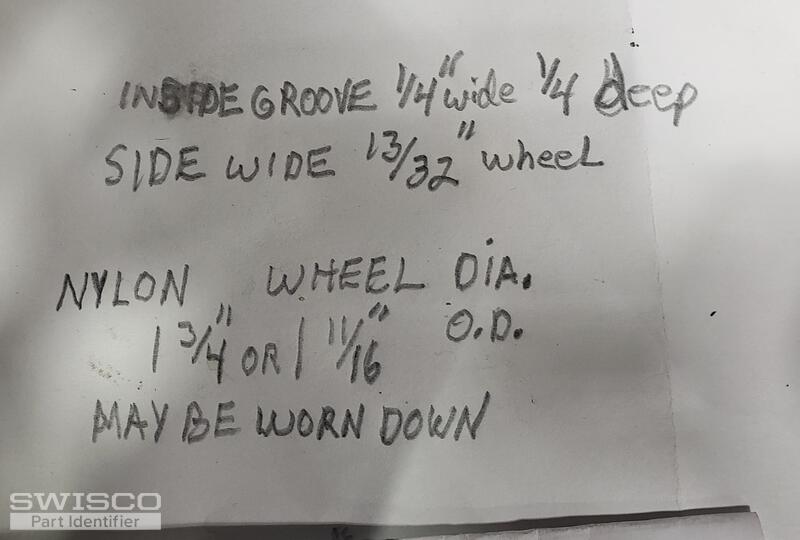 INSIDE GROOVE 1/4" wide 1/4 deep
SIDE WIDE 13/32" wheeL
NYLON WHEEL DiA.
1 3/4" OR 1 11/16" O.D.
MAY BE WORN DOWN
SWISCO
Part Identifier